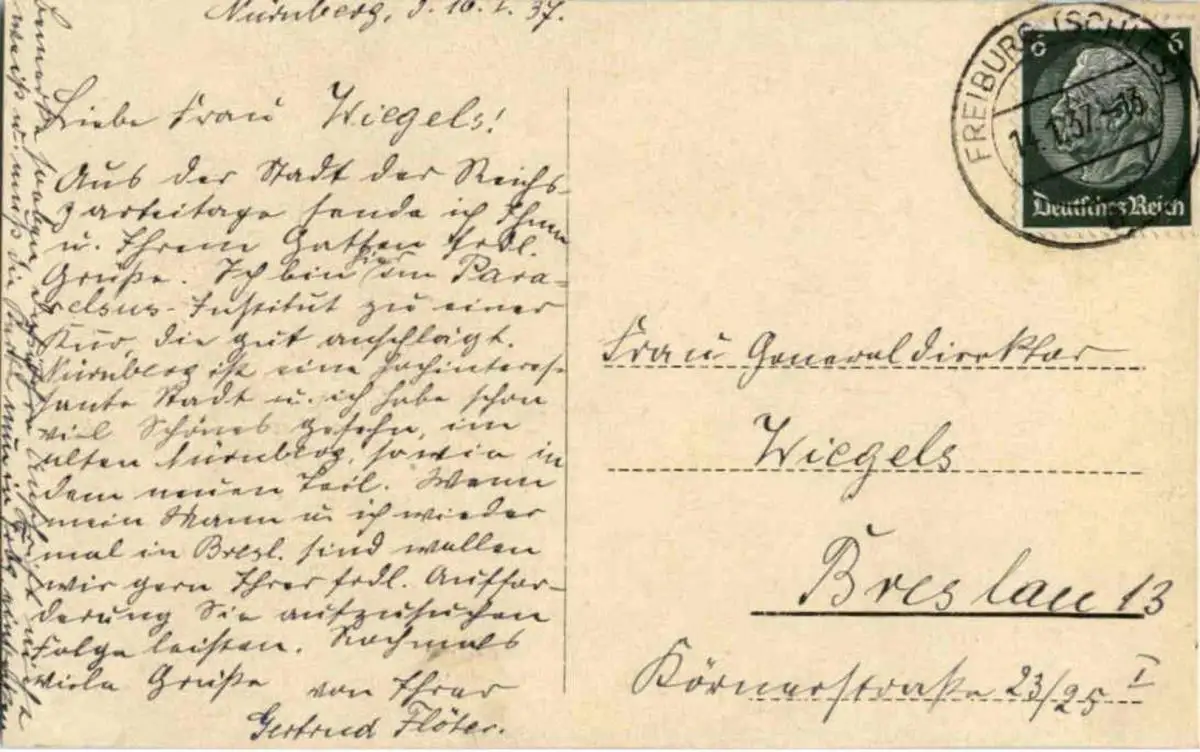 Nürnberg, d. 10.1.37.
Liebe Frau Wiegels!
Aus der Stadt der Reichs-
parteitage sende ich Ihnen
u. Ihrem Gatten frdl.
Grüße. Ich bin hier im Para-
celsus-Institut zu einer
Kur, die gut anschlägt.
Nürnberg ist eine hochinteres-
sante Stadt u. ich habe schon
viel Schönes gesehn, im
alten Nürnberg, sowie in
dem neuen Teil. Wenn
mein Mann u. ich wieder
mal in Bresl. sind wollen
wir gern Ihrer frdl. Auffor-
derung Sie aufzusuchen
Folge leisten. Nochmals
viele Grüße von Ihrer
Gertrud Flöter.
bemerke soeben, daß ich Ihre Anschrift nicht
weiß u. muß die Karte nun in
FREIBURG (SCHLES)
14.1.37.-13
6 6
Deutsches Reich
Frau Generaldirektor
Wiegels
Breslau 13
Körnerstraße 23/25 I